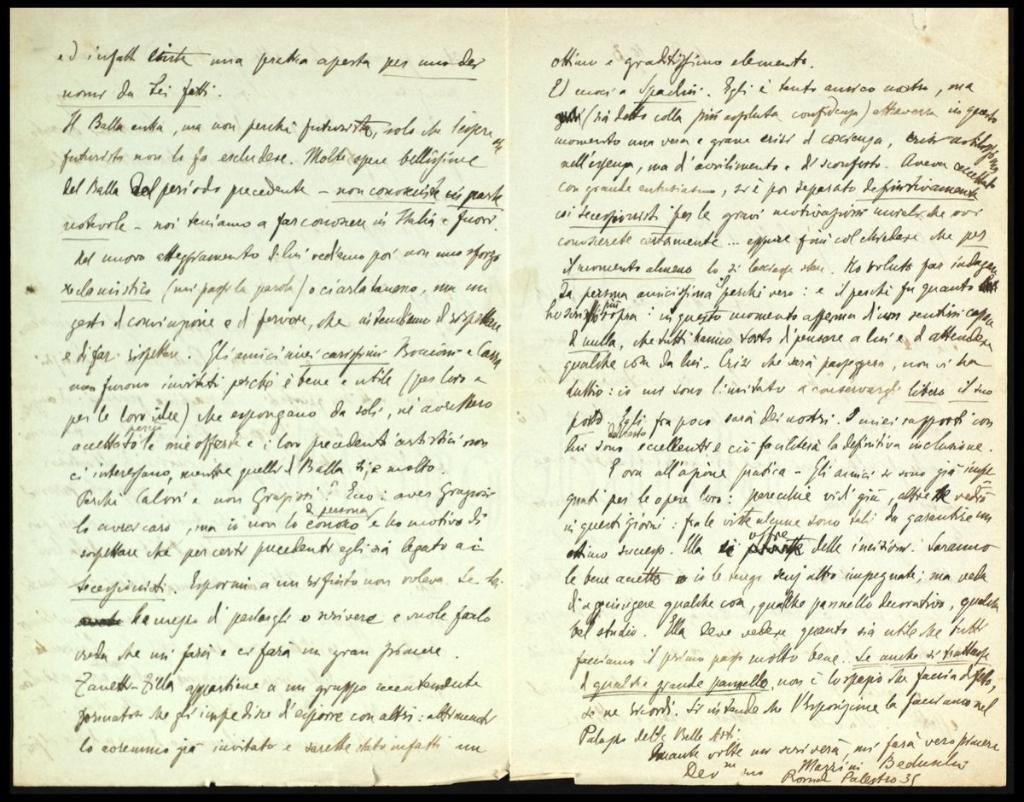 ed infatti una pratica aperta per uno dei
nomi da Lei fatti.
Il Balla entra, ma non perchè futurista, solo che l'essere
futurista non lo fa escludere. Molte opere bellissime
del Balla del periodo precedente – non conosciute in parte
notevole – noi teniamo a far conoscere in Italia e fuori.
Nel nuovo atteggiamento di lui vediamo poi non uno sforzo
reclamistico (mi passi la parola) o ciarlatanesco, ma un
gesto di convinzione e di fervore, che intendiamo di rispettare
e di far rispettare. Gli amici miei carissimi Boccioni e Carrà
non furono invitati perchè è bene e utile (per loro e
per le loro idee) che espongano da soli, nè avrebbero
accettato le mie offerte e i loro precedenti artistici non
ci interessano, mentre quelli di Balla sì, e molto.
Perchè Calori e non Graziosi? Ecco: aver Graziosi
lo avrei caro, ma io non lo conosco di persona e ho motivo di
sospettare che per certi precedenti egli sia legato ai
secessionisti. Espormi a un rifiuto non volevo. Se
ha mezzo di parlargli o scrivere e vuole farlo
creda che mi farà e ci farà un gran piacere.
Zanetti-Zilla appartiene a un gruppo recentemente
formatosi che gli impedisce d'esporre con altri: altrimenti
lo avremmo già invitato e sarebbe stato infatti un
ottimo e graditissimo elemento.
Ed eccoci a Spadini. Egli è tanto amico nostro, ma
(sia detto colla più assoluta confidenza) attraversa in questo
momento una vera e grave crisi di coscienza,
nell'essenza, ma d'avvilimento e di sconforto. Aveva accettato
con grande entusiasmo, si è poi separato definitivamente
coi secessionisti per le gravi motivazioni morali che voi
conoscerete certamente ... eppure finì col chiedere che per
il momento almeno lo si lasciasse stare. Ho voluto far indagare
da persona amicissima i perchè veri: e il perchè fu quanto
ho scritto più sopra: in questo momento afferma di non sentirsi capace
di nulla, che tutti hanno torto di pensare a lui e di attendere
qualche cosa da lui. Crisi che sarà passeggera, non vi ha
dubbio: io mi sono limitato a conservargli libero il suo
posto. Egli fra poco sarà dei nostri. I miei rapporti con
lui sono eccellenti e ciò faciliterà la definitiva inclusione.
E ora all'azione pratica – Gli amici si sono già impe-
gnati per le opere loro: parecchie vidi già, altre vedrò
in questi giorni: fra le viste alcune sono tali da garantire un
ottimo successo. Ella offre delle incisioni. Saranno
le bene accette e io le tengo senz'altro impegnate; ma veda
d'aggiungere qualche cosa, qualche pannello decorativo, qualche
bel studio. Ella deve vedere quanto sia utile che tutti
facciamo il primo passo molto bene. Se anche si trattasse
di qualche grande pannello, non è lo spazio che faccia difetto,
se ne ricordi. Si intende che l'Esposizione la facciamo nel
Palazzo delle Belle Arti.
Quante volte mi scriverà, mi farà vero piacere
Dev.mo suo Mazzini Beduschi
Roma Palestro 35